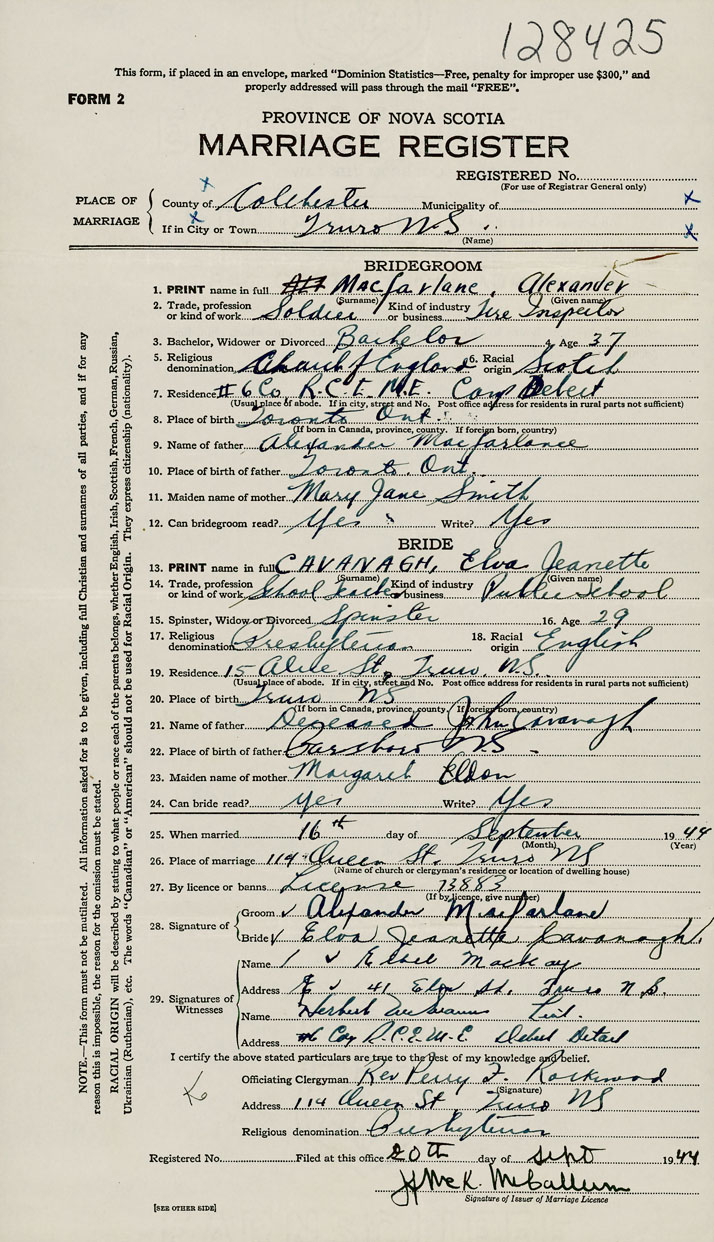 128425
This form, if placed in an envelope, marked "Dominion Statistics—Free, penalty for improper use $300," and
properly addressed will pass through the mail "FREE".
FORM 2
PROVINCE OF NOVA SCOTIA
MARRIAGE REGISTER
REGISTERED No.
(For use of Registrar General only)
PLACE OF MARRIAGE
County of Colchester Municipality of
If in City or Town Truro N.S.
(Name)
BRIDEGROOM
1. PRINT name in full Macfarlane, Alexander
(Surname) (Given name)
2. Trade, profession or kind of work Soldier Kind of industry or business Tire Inspector
3. Bachelor, Widower or Divorced Bachelor 4. Age 37
5. Religious denomination Church of England 6. Racial origin Scotch
7. Residence #6 Co R.C.E.M.E. Camp Debert
(Usual place of abode. If in city, street and No. Post office address for residents in rural parts not sufficient)
8. Place of birth Toronto Ont.
(If born in Canada, province, county. If foreign born, country)
9. Name of father Alexander Macfarlance
10. Place of birth of father Toronto. Ont.
11. Maiden name of mother Mary Jane Smith
12. Can bridegroom read? Yes Write? Yes
BRIDE
13. PRINT name in full CAVANAGH, Elva Jeanette
(Surname) (Given name)
14. Trade, profession or kind of work School Teacher Kind of industry or business Public School
15. Spinster, Widow or Divorced Spinster 16. Age 29
17. Religious denomination Presbyterian 18. Racial origin English
19. Residence 15 Alice St, Truro, N.S.
(Usual place of abode. If in city, street and No. Post office address for residents in rural parts not sufficient)
20. Place of birth Truro NS
(If born in Canada, province, county. If foreign born, country)
21. Name of father Deceased John Cavanagh
22. Place of birth of father Parrsboro NS
23. Maiden name of mother Margaret Eldon
24. Can bride read? Yes Write? Yes
25. When married 16th day of September 1944
(Month) (Year)
26. Place of marriage 114 Queen St. Truro NS
(Name of church or clergyman's residence or location of dwelling house)
27. By licence or banns License 73883
(If by licence, give number)
28. Signature of
Groom Alexander Macfarlane
Bride Elva Jeanette Cavanagh
29. Signatures of Witnesses
Name Ethel MacKay
Address 41 Elm St. Truro N.S.
Name Herbert
Address #6 Coy R.C.E.M.E. Debert Detach
I certify the above stated particulars are true to the best of my knowledge and belief.
Officiating Clergyman Rev Perry F. Rockwood
(Signature)
Address 114 Queen St Truro NS
Religious denomination Presbyterian
Registered No. Filed at this office 20th day of Sept 1944
McK. McCallum
Signature of Issuer of Marriage Licence
[SEE OTHER SIDE]
NOTE.—This form must not be mutilated. All information asked for is to be given, including full Christian and surnames of all parties, and if for any
reason this is impossible, the reason for the omission must be stated.
RACIAL ORIGIN will be described by stating to what people or race each of the parents belongs, whether English, Irish, Scottish, French, German, Russian,
Ukrainian (Ruthenian), etc. The words "Canadian" or "American" should not be used for Racial Origin. They express citizenship (nationality).